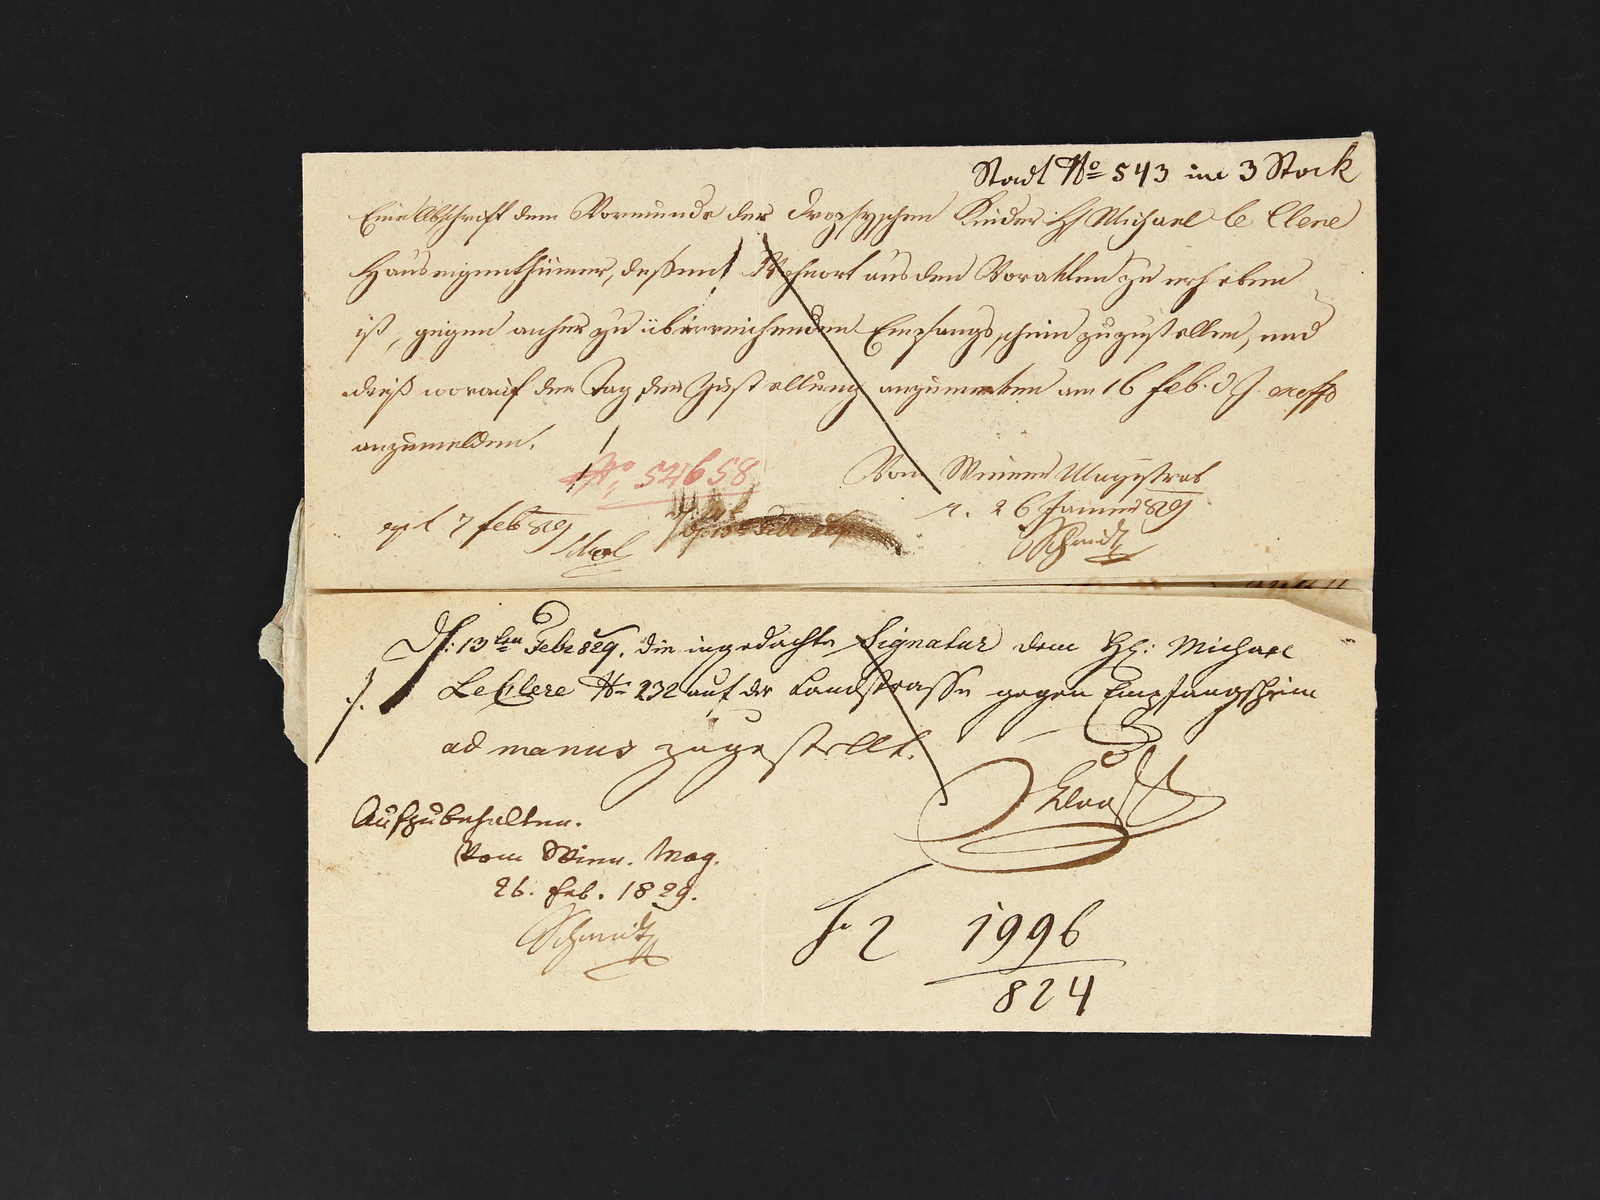 Stadt No 543 im 3 Stock
Eine Abschrift dem Vormunde der Kinder H Michael le Clere
Hauseigenthümer, dessen Wohnort aus den Voracten zu erheben
ist, gegen anher zu überreichenden Empfangsschein zuzustellen, und
dieß worauf der Tag der Zustellung anzumerken am 16 Feb. d J.
anzumelden.
No 52658
Vom Wiener Magistrat
26 Jänner 829
expt 7 feb 829
Schmidt
Df: 13ten Febr 829. die ingedachte Signatur dem H: Michael
Leclere No 232 auf der Landstrasse gegen Empfangschein
ad manus zugestellt.
Aufzubehalten.
Vom Wien. Mag.
26. feb. 1829.
Schmidt
F. 2 1996
824